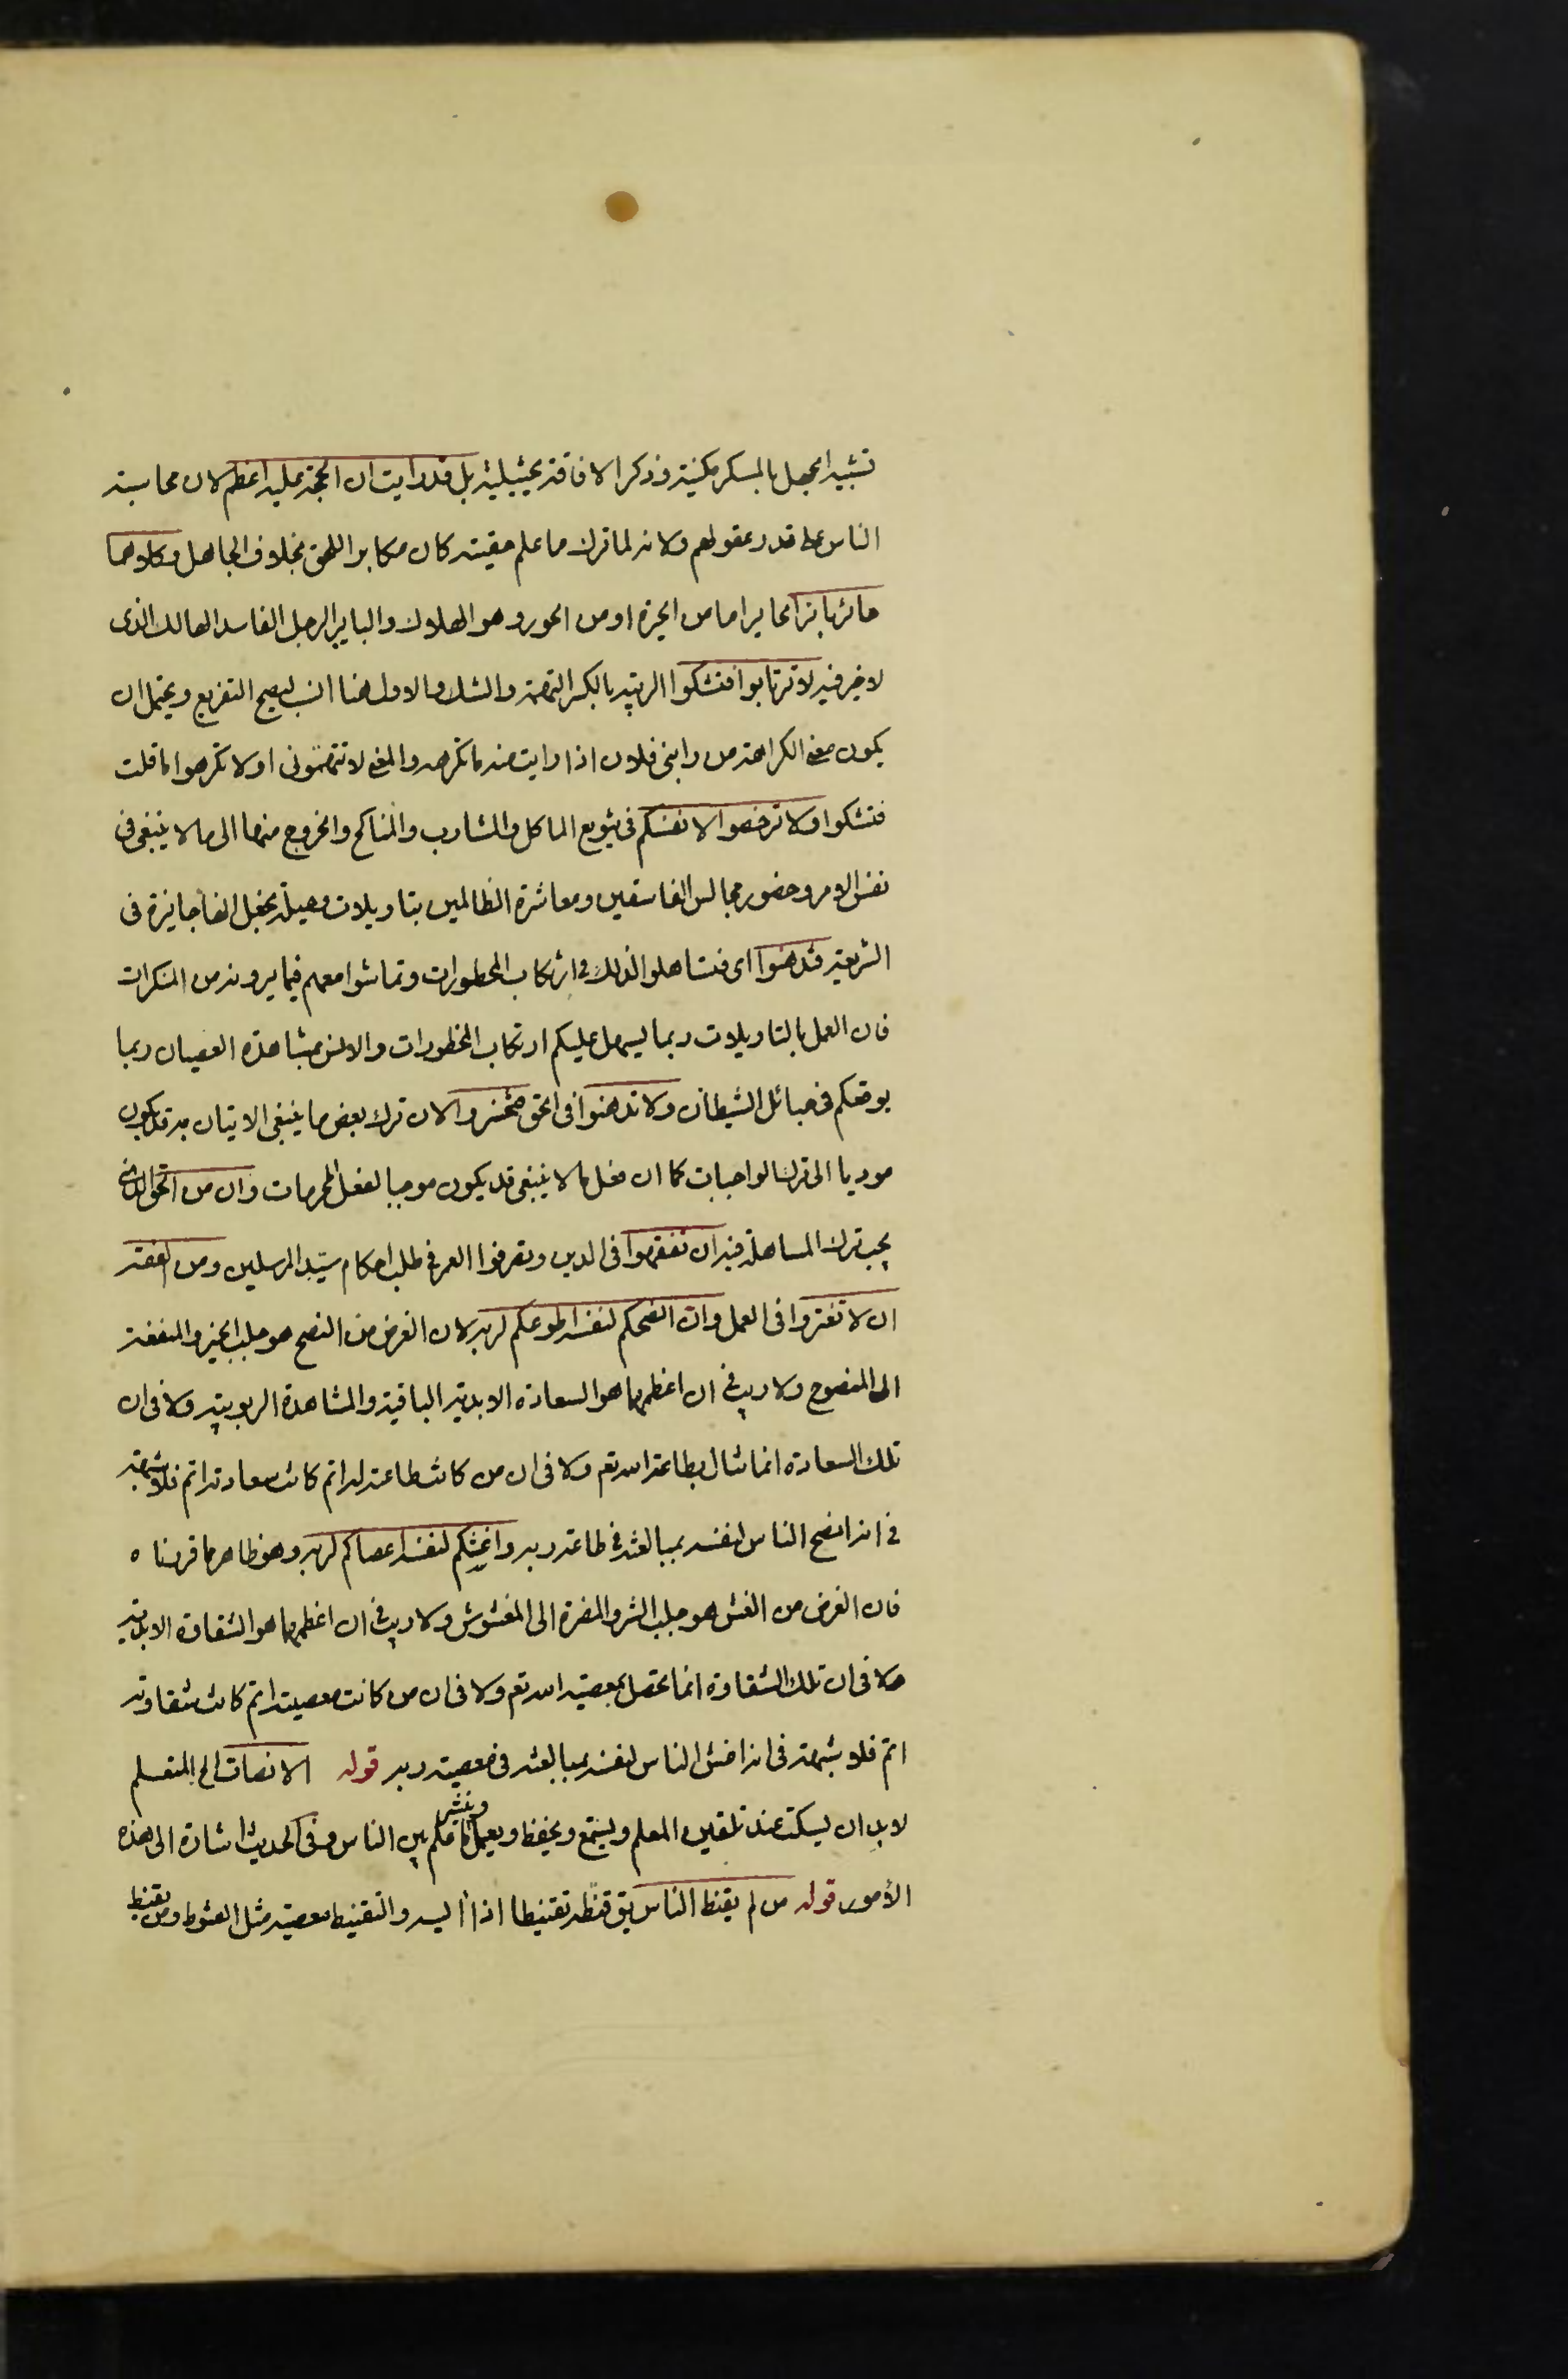 تشبيه الجهل بالمسكر مكنية وذكر الافاقة تخييلية بل قد رايت ان الحجة عليه اعظم لان محاسبة
الناس على قدر عقولهم ولانه لما ترك ما علم حقيته كان مكابرا للحق بخلاف الجاهل وكلاهما
حائر بائر الحاير اما من الحيرة او من الحور وهو الهلاك والباير الرجل الفاسد الهالك الذى
لا خير فيه لا ترتابوا فتشكوا الريبة بالكسر التهمة والشك والاول هنا انسب ليصح التفريع ويحتمل ان
يكون معنى الكراهة من رابنى فلان اذا رايت منه ما تكرهه والمعنى لا تتهمونى او لا تكرهوا ما قلت
فتشكوا ولا ترخصوا لانفسكم فى تنويع الماكل والمشارب والمناكح والخروج منها الى ما لا ينبغى فى
نفس الامر وحضور مجالس الفاسقين ومعاشرة الظالمين بتاويلات وحيلة يتخيل انها جايزة فى
الشريعة فتدهنوا اى فتساهلوا لذلك فى ارتكاب المحظورات وتماشوا معهم فيما يرونه من المنكرات
فان العمل بالتاويلات ربما ليسهل عليكم ارتكاب المحظورات والانس بمشاهدة العصيان ربما
يوقعكم فى حبائل الشيطان ولا تدهنوا فى الحق فتخسروا لان ترك بعض ما ينبغى الاتيان به قد يكون
موديا الى ترك الواجبات كما ان فعل ما لا ينبغى قد يكون موجبا لفعل المحرمات وان من الحق الذى
يجب ترك المساهلة فيه ان تفقهوا فى الدين وتصرفوا العمر فى طلب احكام سيّد المرسلين ومن الفقه
ان لا تغتروا فى العمل وان انصحكم لنفسه اطوعكم لربه لان الغرض من النصح هو جلب الخير والمنفعة
الى المنصوح ولا ريب فى ان اعظمها هو السعادة الابدية الباقية والمشاهدة الربوبية ولا فى ان
تلك السعادة انما تنال بطاعة الله تع ولا فى ان من كانت طاعته له اتم كانت سعادته اتم فلا شبهة
فى انه انصح الناس لنفسه بمبالغته فى طاعة ربه واغشكم لنفسه اعصاكم لربه وهو ظاهر مما قررناه
فان الغرض من الغش هو جلب الشر والمضرة الى المغشوش ولا ريب فى ان اعظمها هو الشقاوة الابدية
ولا فى ان تلك الشقاوة انما تحصل بمعصية الله تع ولا فى ان من كانت معصيته اتم كانت شقاوته
اتم فلا شبهة فى انه اغش الناس لنفسه بمبالغته فى معصية ربه قوله الانصات الخ المتعلم
لا بد ان يسكت عند تلقين المعلم ويستمع ويحفظ ويعمل بما علم وينشره بين الناس وفى الحديث اشارة الى هذه
الأمور قوله من لم يقنط الناس يق قنّطه تقنيطا اذا اليسه والتقنيط معصية مثل القنوط ومن يقنط